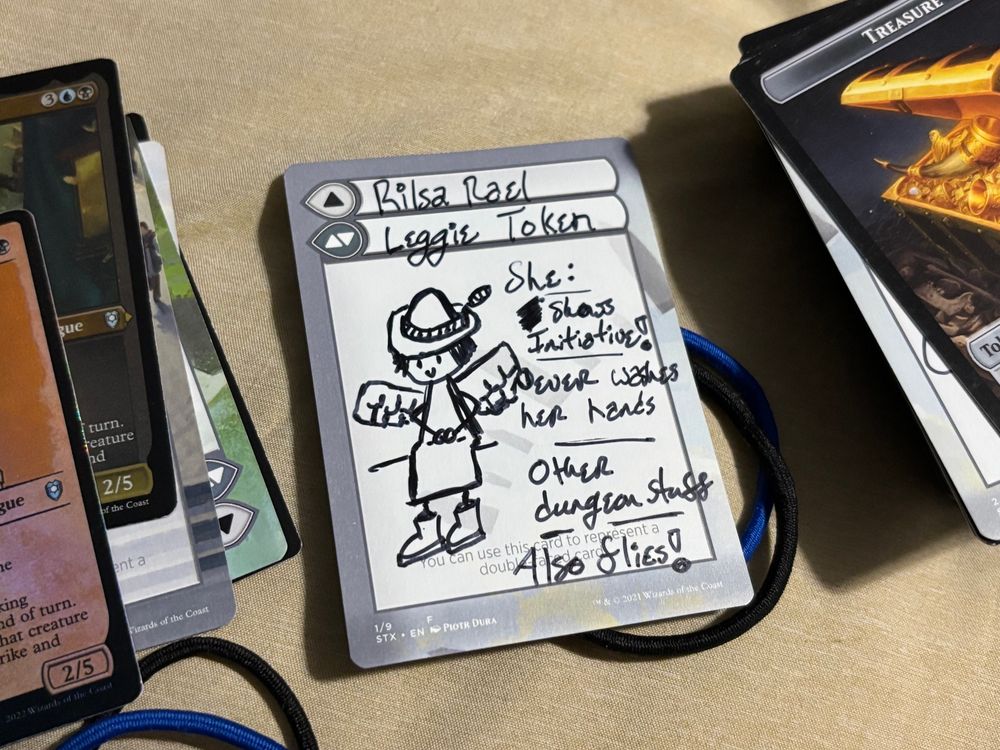 Rilsa Rael
Leggie Token
She:
Shows
Initiative!
Never washes
her hands
Other
dungeon stuff
You can use this card to represent a
double-faced card.
Also flies!
™ & © 2021 Wizards of the Coast
1/9 F
STX • EN Piotr Dura
3
gue
f turn.
reature
nd
2/5
of the Coast
ent a
Wizards of the Coast
gue
he
king
nd of turn.
hat creature
rike and
2/5
2022 Wizards of the Coast
Treasure
To
2